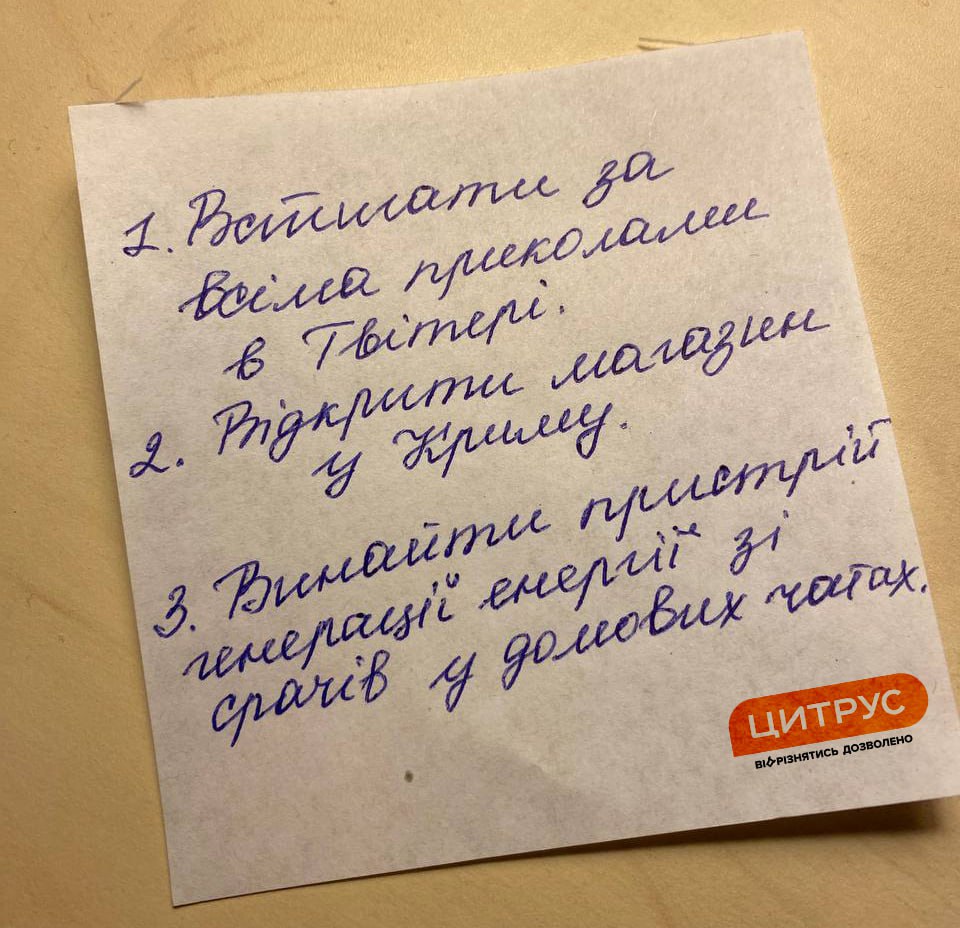 1. Встигати за
всіма приколами
в Твітері.
2. Відкрити магазин
у Криму.
3. Винайти пристрій
генерації енергії зі
срачів у домових чатах.
ЦИТРУС
ВІДРІЗНЯТИСЬ ДОЗВОЛЕНО